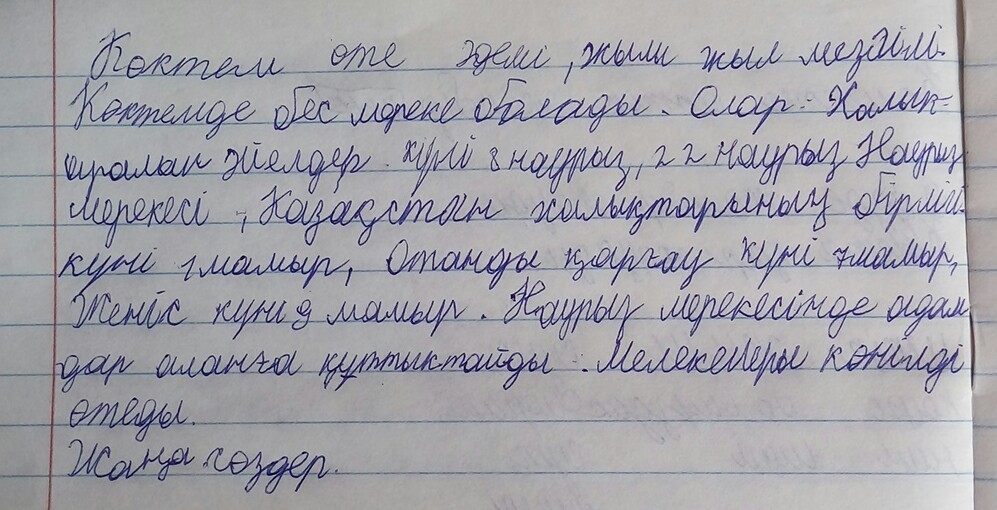 Көктем өте әдемі, жылы жыл мезгілі.
Көктемде бес мереке болады. Олар: Халық-
аралап әйелдер күні 8 наурыз, 22 наурыз Наурыз
мерекесі, Казақстан халықтарының бірлігі
күні 1 мамыр, Отанды қорғау күні 7 мамыр,
Женіс күні 9 мамыр. Наурыз мерекесінде адам
дар аланға құттықтайды. Мелекелеры көнілді
өтеды.
Жаңа сөздер.